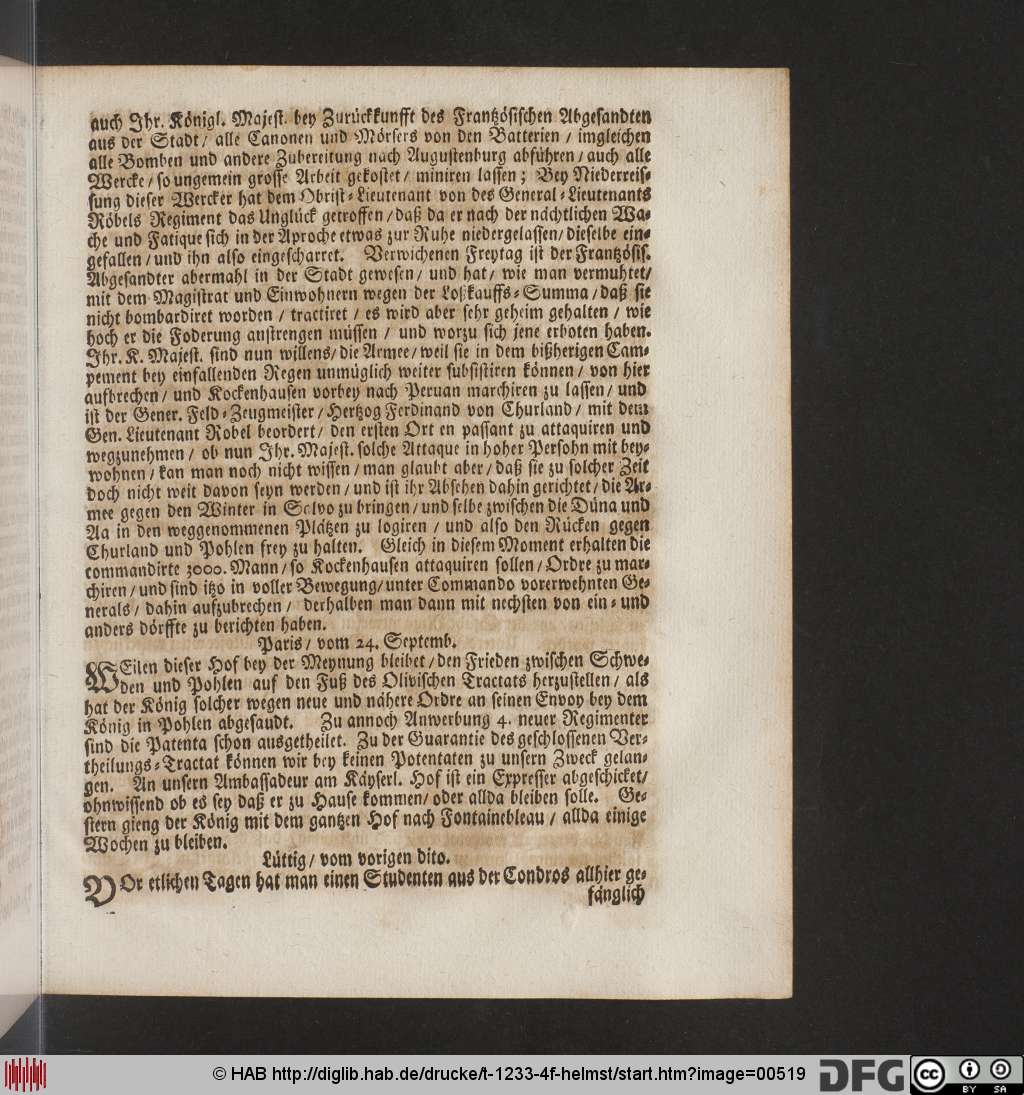 auch Ihr. Königl. Majest. bey Zurückkunfft des Frantzösischen Abgesandten
aus der Stadt / alle Canonen und Mörsers von den Batterien / imgleichen
alle Bomben und andere Zubereitung nach Augustenburg abführen / auch alle
Wercke / so ungemein grosse Arbeit gekostet / miniren lassen; Bey Niederreis-
sung dieser Wercker hat dem Obrist-Lieutenant von des General-Lieutenants
Röbels Regiment das Unglück getroffen / daß da er nach der nächtlichen Wa-
che und Fatique sich in der Aproche etwas zur Ruhe niedergelassen / dieselbe ein-
gefallen / und ihn also eingescharret. Verwichenen Freytag ist der Frantzösis.
Abgesandter abermahl in der Stadt gewesen / und hat / wie man vermuhtet /
mit dem Magistrat und Einwohnern wegen der Loßkauffs-Summa / daß sie
nicht bombardiret worden / tractiret / es wird aber sehr geheim gehalten / wie
hoch er die Foderung anstrengen müssen / und worzu sich jene erboten haben.
Ihr. K. Majest. sind nun willens / die Armee / weil sie in dem bißherigen Cam-
pement bey einfallenden Regen unmüglich weiter subsistiren können / von hier
aufbrechen / und Kockenhausen vorbey nach Peruan marchiren zu lassen / und
ist der Gener. Feld-Zeugmeister / Hertzog Ferdinand von Churland / mit dem
Gen. Lieutenant Robel beordert / den ersten Ort en passant zu attaquiren und
wegzunehmen / ob nun Ihr. Majest. solche Attaque in hoher Persohn mit bey-
wohnen / kan man noch nicht wissen / man glaubt aber / daß sie zu solcher Zeit
doch nicht weit davon seyn werden / und ist ihr Absehen dahin gerichtet / die Ar-
mee gegen den Winter in Salvo zu bringen / und selbe zwischen die Düna und
Aa in den weggenommenen Plätzen zu logiren / und also den Rücken gegen
Churland und Pohlen frey zu halten. Gleich in diesem Moment erhalten die
commandirte 3000. Mann / so Kockenhausen attaquiren sollen / Ordre zu mar-
chiren / und sind itzo in voller Bewegung / unter Commando vorerwehnten Ge-
nerals / dahin aufzubrechen / derhalben man dann mit nechsten von ein- und
anders dörffte zu berichten haben.
Paris / vom 24. Septemb.
WEilen dieser Hof bey der Meynung bleibet / den Frieden zwischen Schwe-
den und Pohlen auf den Fuß des Olivischen Tractats herzustellen / als
hat der König solcher wegen neue und nähere Ordre an seinen Envoy bey dem
König in Pohlen abgesaudt. Zu annoch Anwerbung 4. neuer Regimenter
sind die Patenta schon ausgetheilet. Zu der Guarantie des geschlossenen Ver-
theilungs-Tractat können wir bey keinen Potentaten zu unsern Zweck gelan-
gen. An unsern Ambassadeur am Käyserl. Hof ist ein Expresser abgeschicket /
ohnwissend ob es sey daß er zu Hause kommen / oder allda bleiben solle. Ge-
stern gieng der König mit dem gantzen Hof nach Fontainebleau / allda einige
Wochen zu bleiben.
Lüttig / vom vorigen dito.
VOr etlichen Tagen hat man einen Studenten aus der Condros allhier ge-
fänglich
© HAB http://diglib.hab.de/drucke/t-1233-4f-helmst/start.htm?image=00519
DFG
cc BY SA